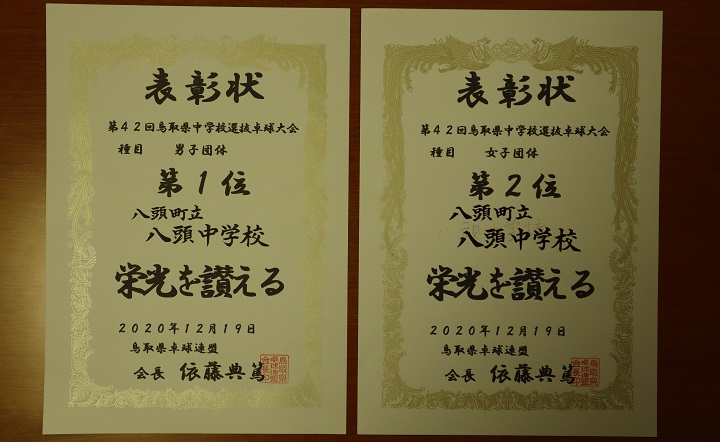 表彰状
第42回鳥取県中学校選抜卓球大会
種目 男子団体
第1位
八頭町立
八頭中学校
栄光を讃える
2020年12月19日
鳥取県卓球連盟
会長 依藤典篤
鳥取県
卓球連盟
会長印
表彰状
第42回鳥取県中学校選抜卓球大会
種目 女子団体
第2位
八頭町立
八頭中学校
栄光を讃える
2020年12月19日
鳥取県卓球連盟
会長 依藤典篤
鳥取県
卓球連盟
会長印